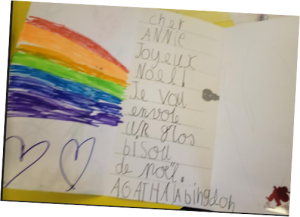 cher
ANNIE
Joyeux
Noël!
Je vou
envoie
un gros
bisou
de noël.
AGATHA Abingdon